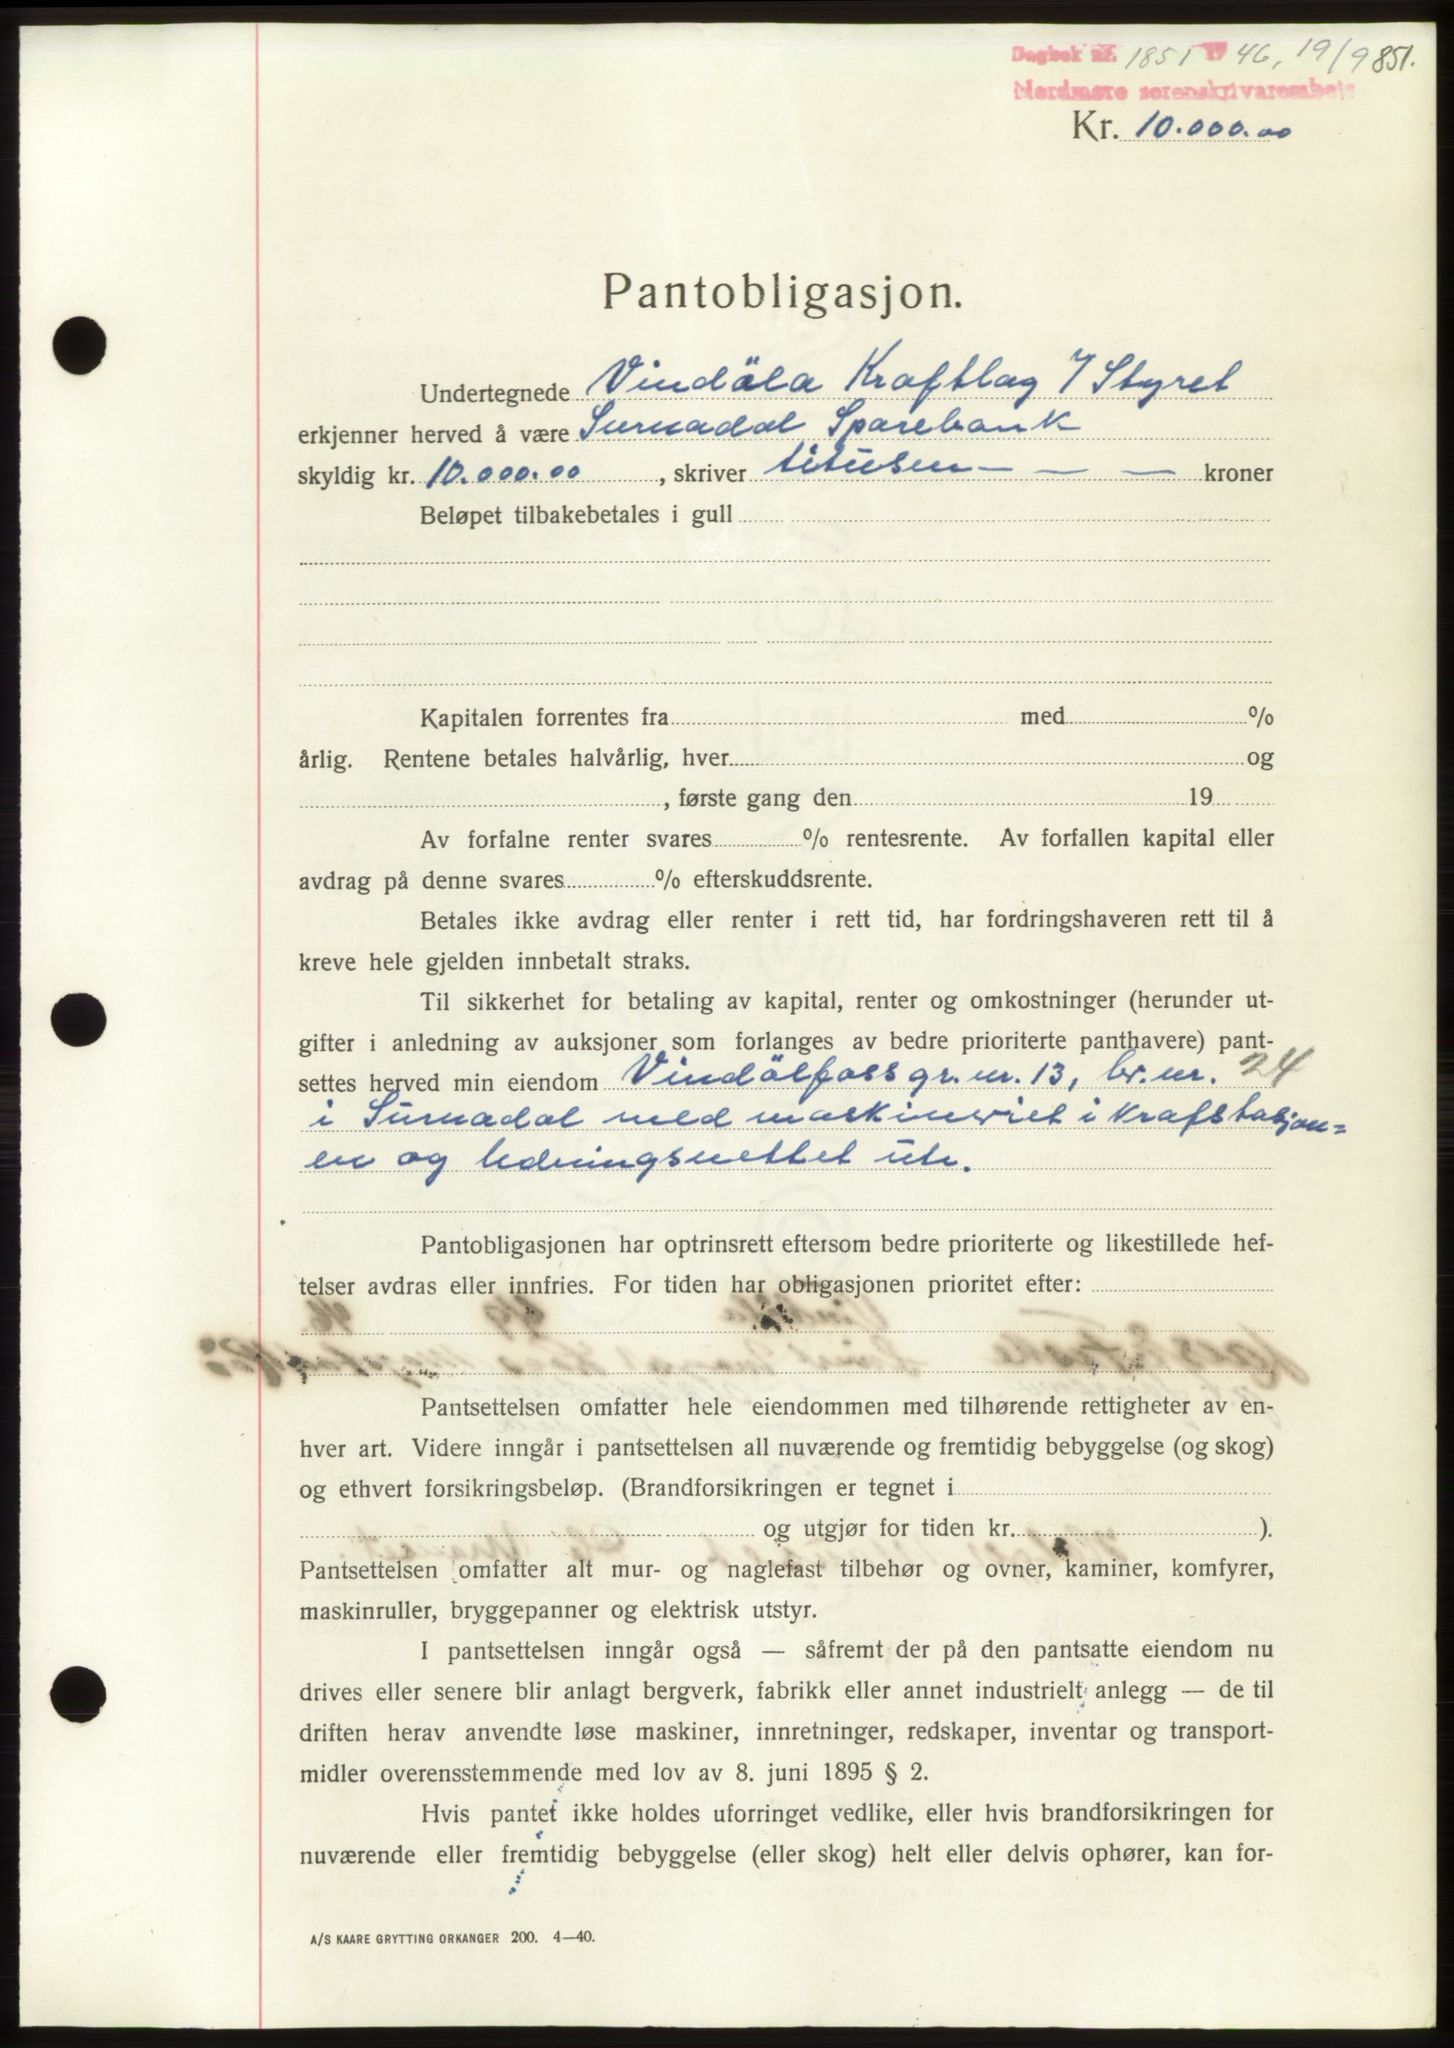 Dagbok nr. 1851 1946, 19/9 851.
Nordmøre sorenskrivarembete
Kr. 10.000.00
Pantobligasjon.
Undertegnede Vindöla Kraftlag % Styret
erkjenner herved å være Surnadal Sparebank
skyldig kr. 10.000.00, skriver titusen — — — kroner
Beløpet tilbakebetales i gull
Kapitalen forrentes fra med %
årlig. Rentene betales halvårlig, hver og
, første gang den 19
Av forfalne renter svares % rentesrente. Av forfallen kapital eller
avdrag på denne svares % efterskuddsrente.
Betales ikke avdrag eller renter i rett tid, har fordringshaveren rett til å
kreve hele gjelden innbetalt straks.
Til sikkerhet for betaling av kapital, renter og omkostninger (herunder ut-
gifter i anledning av auksjoner som forlanges av bedre prioriterte panthavere) pant-
settes herved min eiendom Vindölfoss gr.nr. 13, br.nr. 24
i Surnadal med maskineriet i krafstasjon=
en og ledningsnettet ute.
Pantobligasjonen har optrinsrett eftersom bedre prioriterte og likestillede hef-
telser avdras eller innfries. For tiden har obligasjonen prioritet efter:
Pantsettelsen omfatter hele eiendommen med tilhørende rettigheter av en-
hver art. Videre inngår i pantsettelsen all nuværende og fremtidig bebyggelse (og skog)
og ethvert forsikringsbeløp. (Brandforsikringen er tegnet i
og utgjør for tiden kr. ).
Pantsettelsen omfatter alt mur- og naglefast tilbehør og ovner, kaminer, komfyrer,
maskinruller, bryggepanner og elektrisk utstyr.
I pantsettelsen inngår også — såfremt der på den pantsatte eiendom nu
drives eller senere blir anlagt bergverk, fabrikk eller annet industrielt anlegg — de til
driften herav anvendte løse maskiner, innretninger, redskaper, inventar og transport-
midler overensstemmende med lov av 8. juni 1895 § 2.
Hvis pantet ikke holdes uforringet vedlike, eller hvis brandforsikringen for
nuværende eller fremtidig bebyggelse (eller skog) helt eller delvis ophører, kan for-
A/S KAARE GRYTTING ORKANGER 200. 4—40.